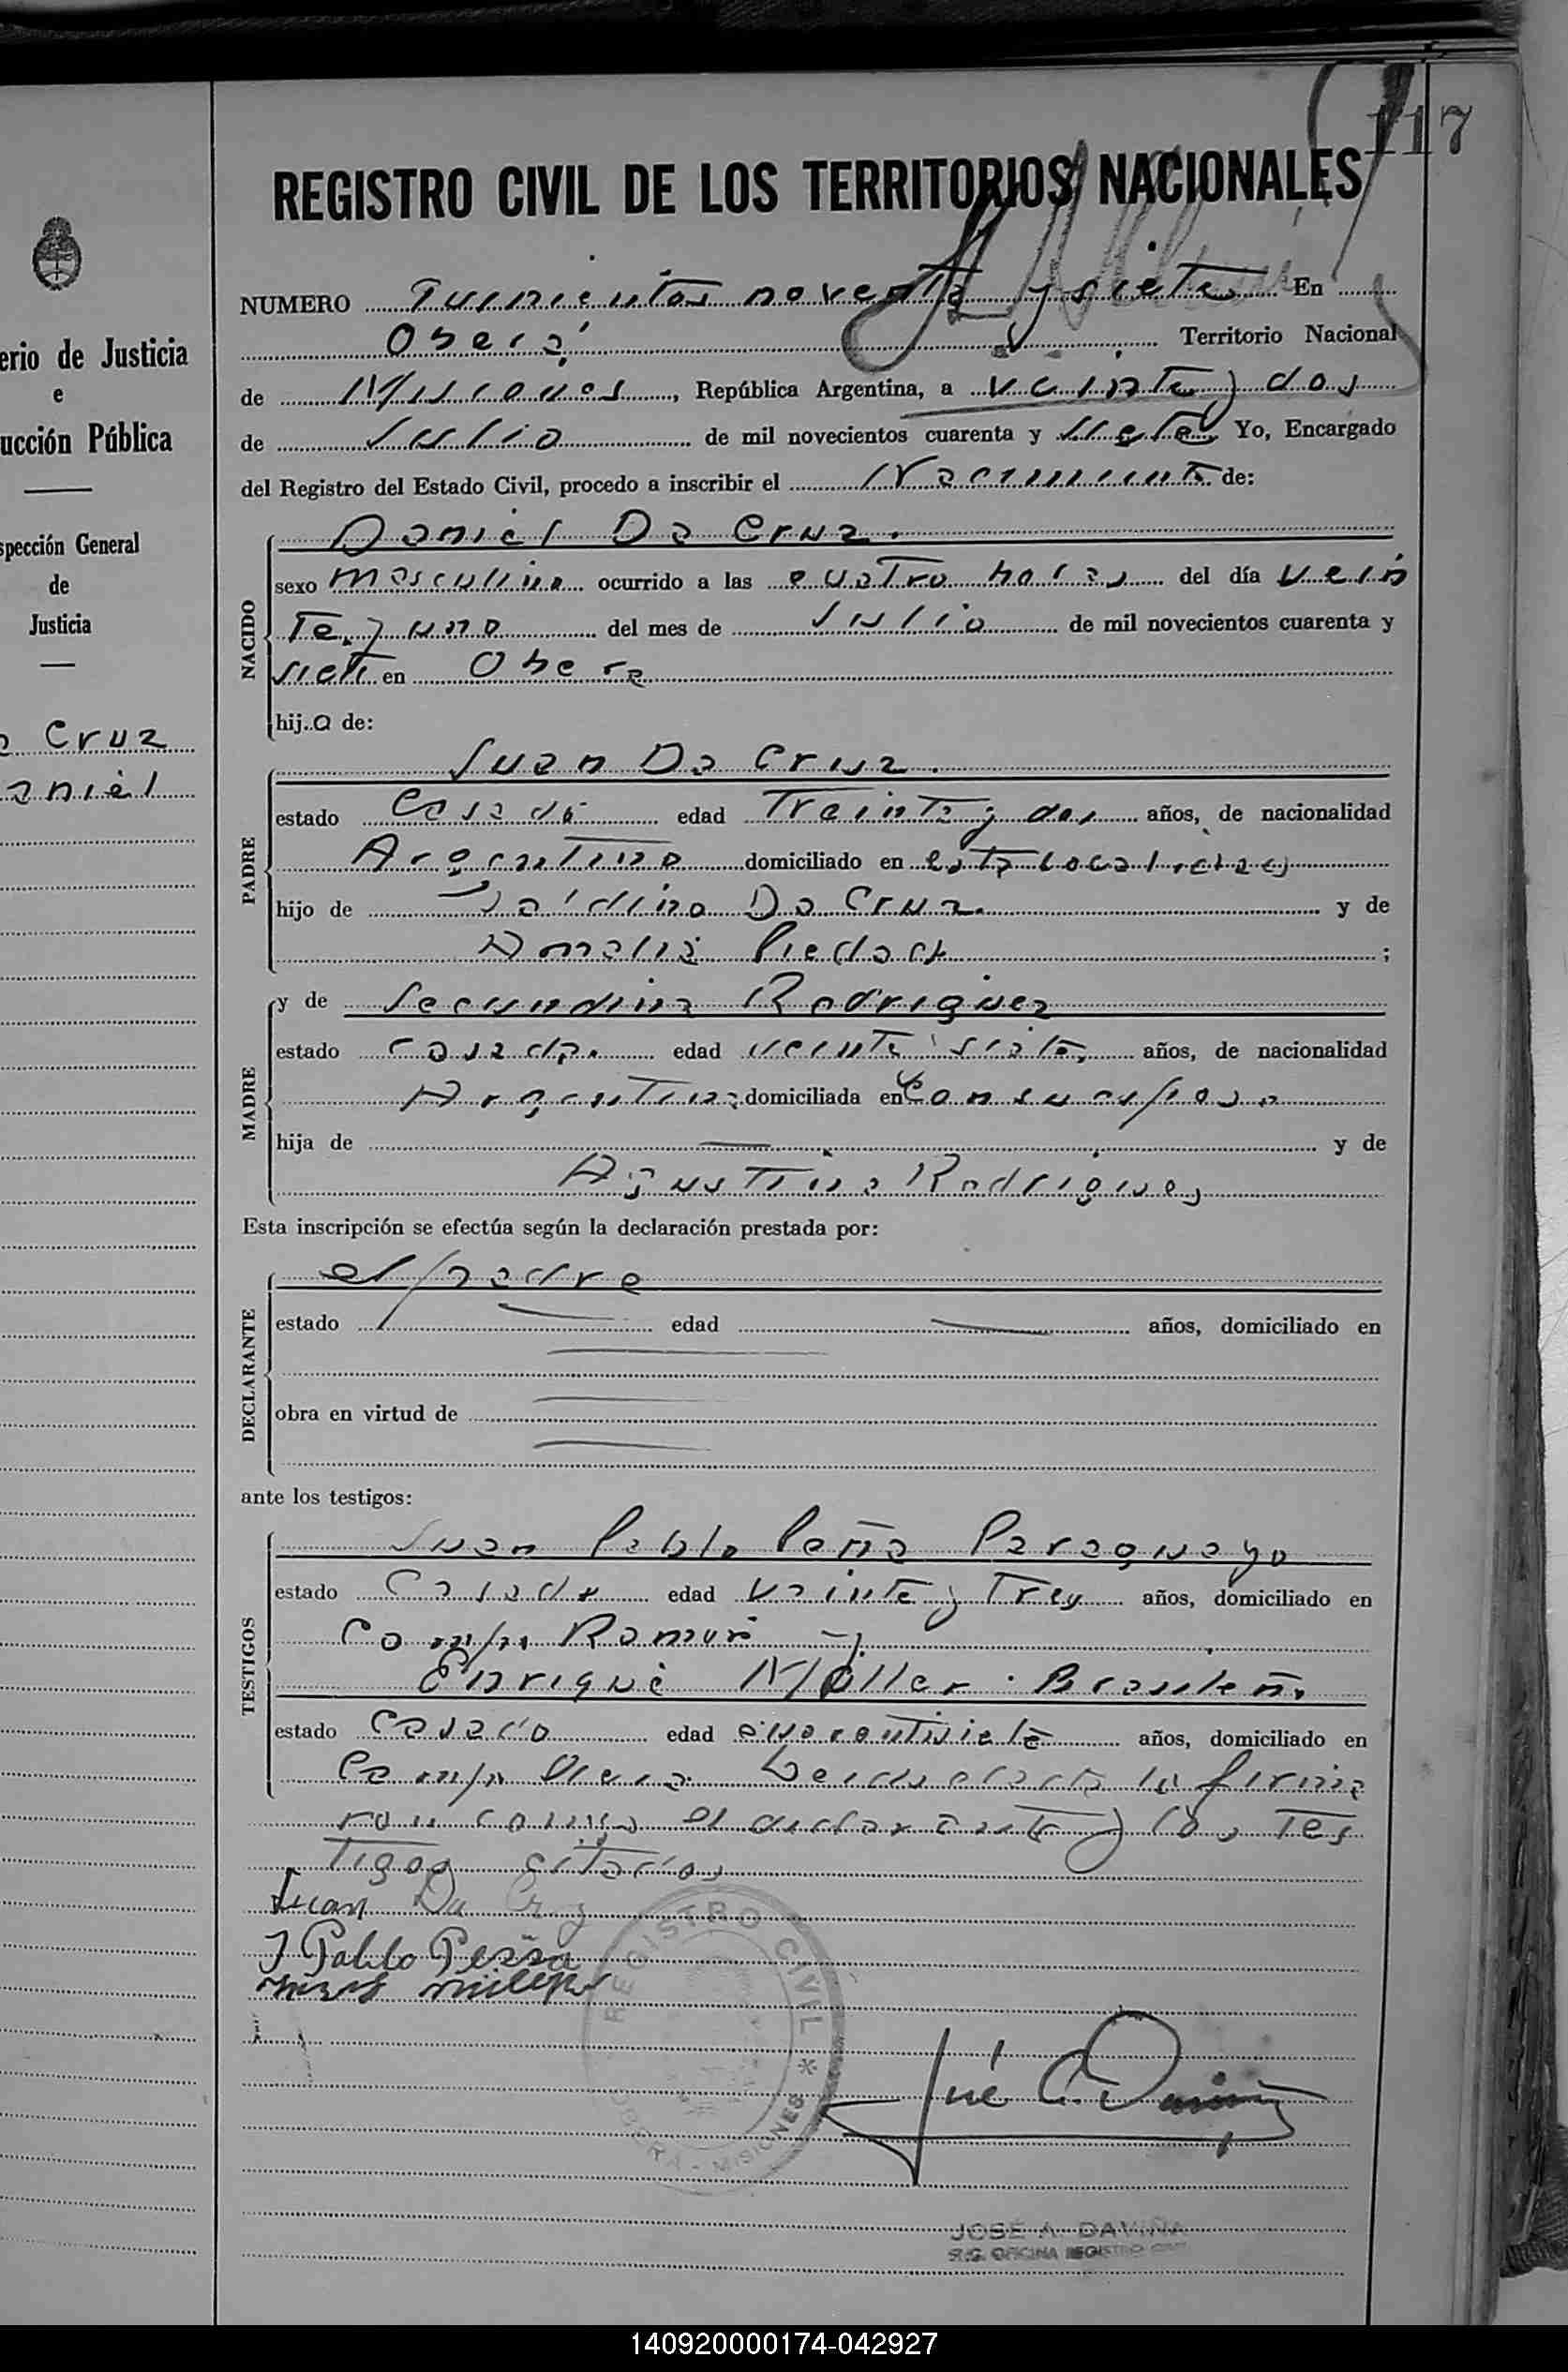 117
REGISTRO CIVIL DE LOS TERRITORIOS NACIONALES
erio de Justicia
e
ucción Pública
spección General
de
Justicia
Cruz
aniel
NUMERO Quinientos noventa y siete En
Oberá Territorio Nacional
de Misiones, República Argentina, a veinte y dos
de Julio de mil novecientos cuarenta y siete Yo, Encargado
del Registro del Estado Civil, procedo a inscribir el Nacimiento de:
Daniel Da Cruz.
NACIDO
sexo masculino ocurrido a las cuatro horas del día vein
te y uno del mes de Julio de mil novecientos cuarenta y
siete en Obera
hijo de:
Juan Da Cruz.
PADRE
estado Casado edad Treinta y dos años, de nacionalidad
Argentino domiciliado en esta localidad
hijo de Da Cruz. y de
Amalia Piedad ;
MADRE
y de Secundina Rodriguez
estado casada. edad veinte siete, años, de nacionalidad
Argentina domiciliada en Con su esposo
hija de — y de
Agustina Rodrigues
Esta inscripción se efectúa según la declaración prestada por:
el padre
DECLARANTE
estado edad años, domiciliado en
obra en virtud de
ante los testigos:
TESTIGOS
Juan Pablo Peña Paraguayo
estado Casado edad veinte y Tres años, domiciliado en
Campo Ramon y
Enrique Möller. Brasileño
estado casado edad cuarentisiete años, domiciliado en
Campo Viera. Leida el acta la firma
ron conmigo el declarante y los Tes
Tigos citados
Juan Da Cruz
J Pablo Peña
REGISTRO CIVIL * OBERÁ - MISIONES
José A. Daviña
JOSÉ A. DAVIÑA
OFICINA REGISTRO CIVIL
140920000174-042927